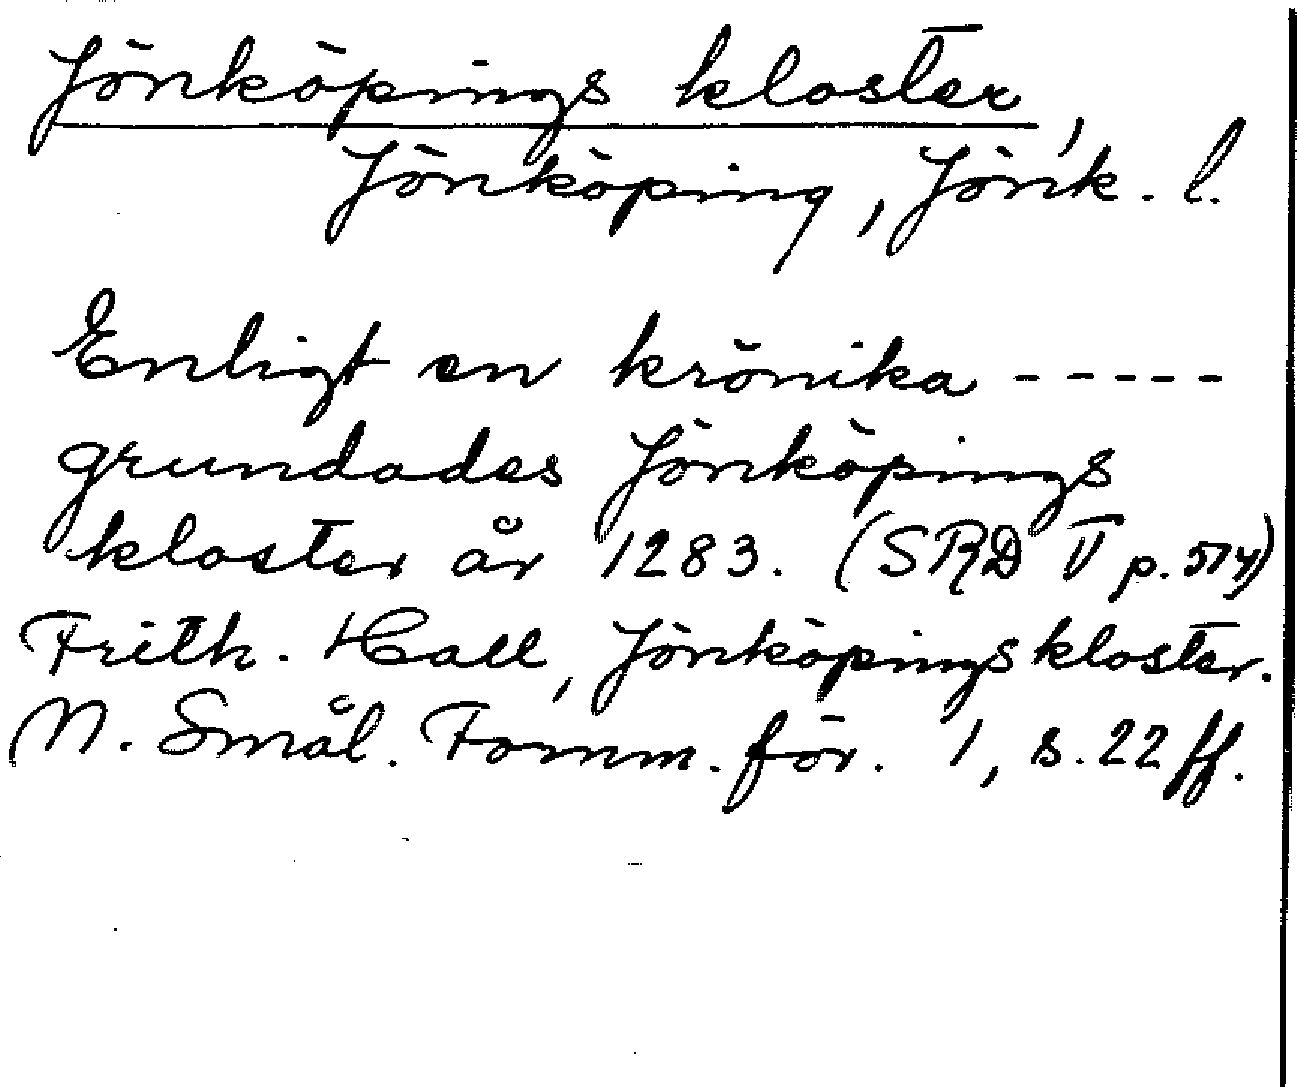 Jönköpings kloster,
Jönköping, Jönk. l.
Enligt en krönika -----
grundades Jönköpings
kloster år 1283. (SRD V p. 514)
Frith. Hall, Jönköpings kloster.
N. Smål. Fornm. för. 1, s. 22 ff.